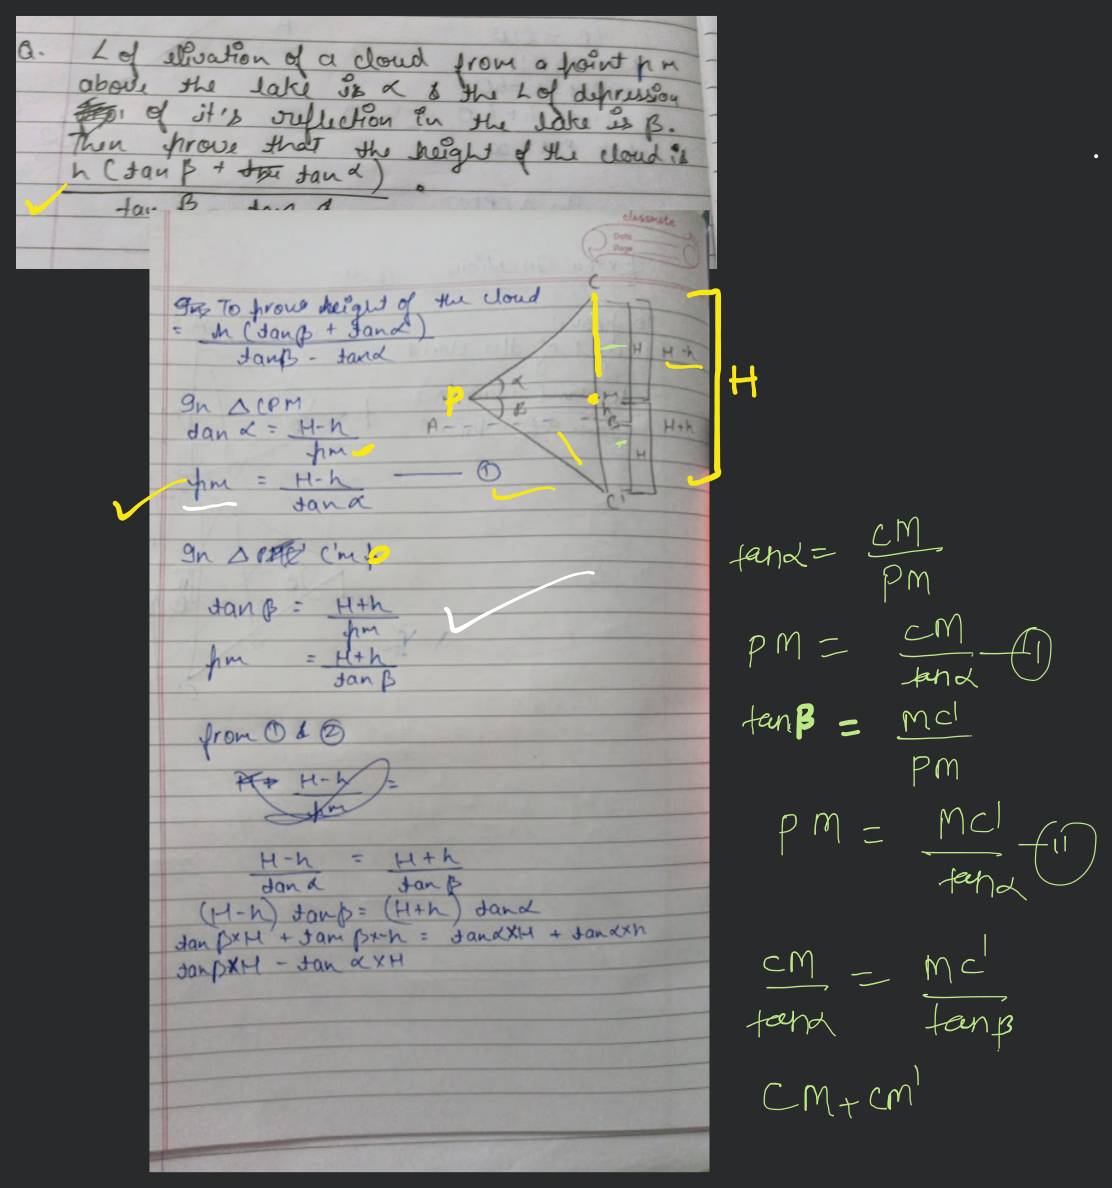 Q. ∠ of elivation of a cloud from a point h m
above the lake is α & the ∠ of depression
of it's reflection in the lake is β.
Then prove that the height of the cloud is
h (tan β + tan α)
tan β - tan α
classmate
Date
Page
To prove height of the cloud
= h (tanβ + tanα)
tanβ - tanα
C
α
β
P
A
M
h
B
H
H
H-h
H+h
C'
H
In △ CPM
tan α = H-h
pm
pm = H-h ——— ①
tan α
In △ C'm p
tan β = H+h
pm
pm = H+h
tan β
from ① & ②
H-h =
pm
H-h = H+h
tan α tan β
(H-h) tanβ = (H+h) tanα
tan β×H + tan β×-h = tanα×H + tanα×h
tanβ×H - tan α×H
tanα = CM
PM
PM = CM —①
tanα
tanβ = MC'
PM
PM = MC' —⑪
tanα
CM = MC'
tanα tanβ
CM + CM'